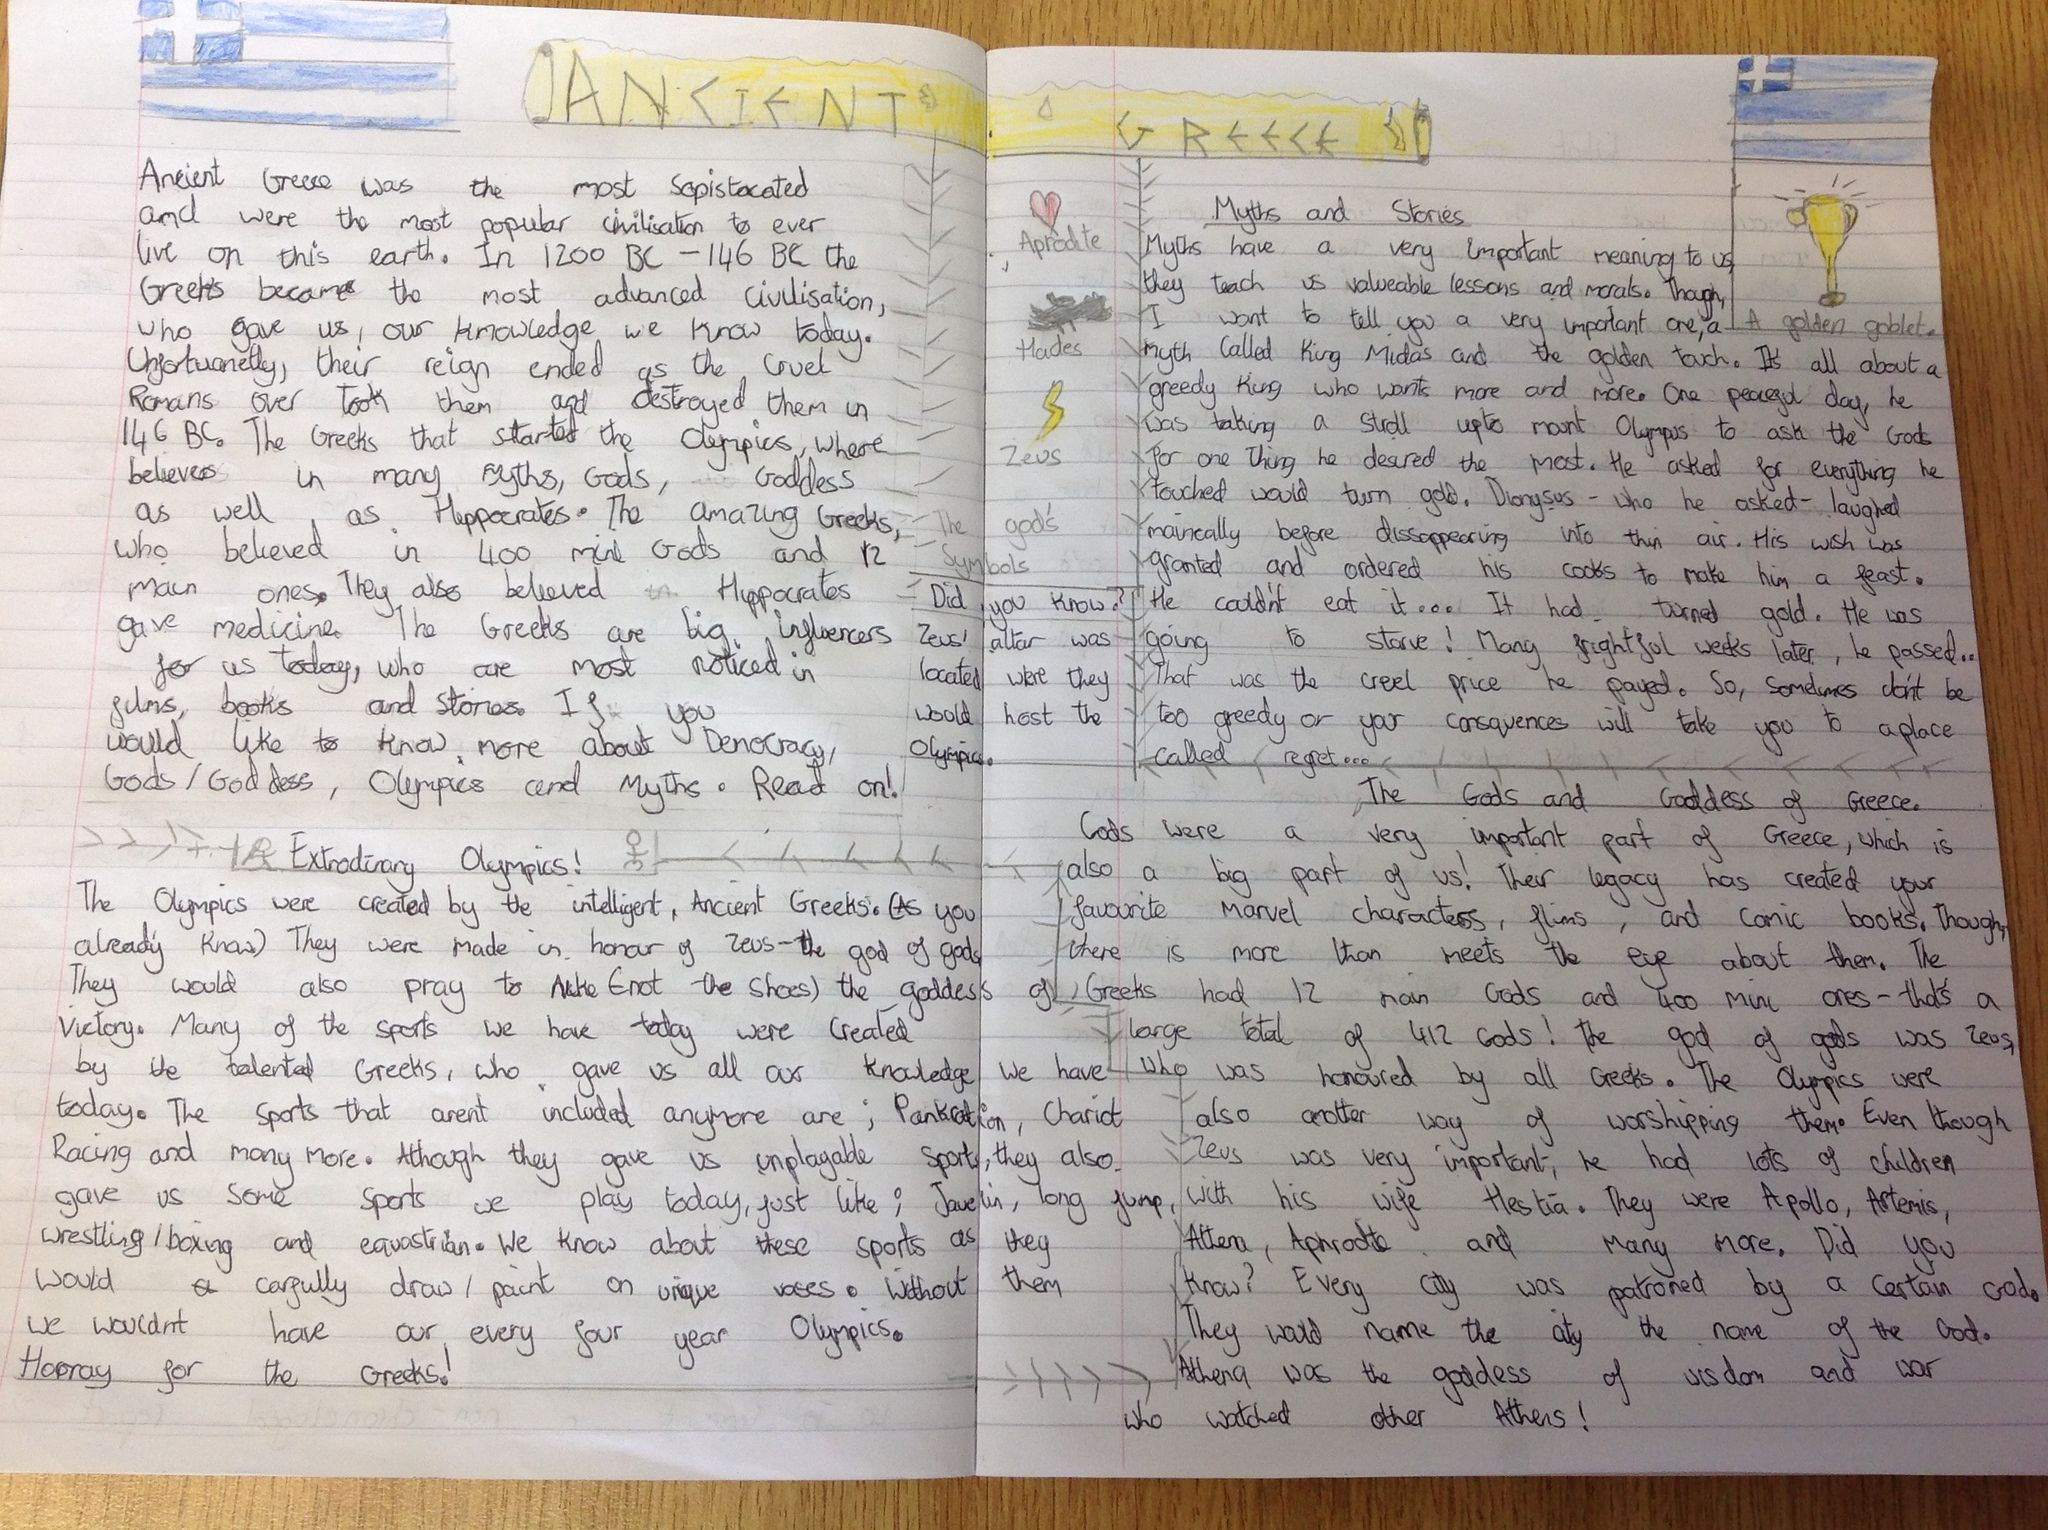 ANCIENT GREECE
Ancient Greece was the most Sopistocated
and were the most popular civilisation to ever
live on this earth. In 1200 BC - 146 BC the
Greeks became the most advanced civilisation,
who gave us, our knowledge we know today.
Unfortuanetly, their reign ended as the cruel
Romans over took them and destroyed them in
146 BC. The Greeks that started the Olympics, where
believers in many myths, Gods, Goddess
as well as Hippocrates. The amazing Greeks,
who believed in 400 mini Gods and 12
main ones. They also believed in Hippocrates
gave medicine. The Greeks are big influencers
for us today, who are most noticed in
films, books and stories. If you
would like to know more about Democracy,
Gods/Goddess, Olympics and Myths. Read on!
Extrodinary Olympics!
The Olympics were created by the intelligent, Ancient Greeks. (As you
already know) They were made in honour of Zeus-the god of gods
They would also pray to Nike (not the shoes) the goddess of
Victory. Many of the sports we have today were created
by the talented Greeks, who gave us all our knowledge we have
today. The sports that arent included anymore are; Pankration, Chariot
Racing and many more. Athough they gave us unplayable sports, they also
gave us some sports we play today, just like; Javelin, long jump,
wrestling/boxing and equastrian. We know about these sports as they
would carfully draw/paint on unique vases. Without them
we wouldn't have our every four year Olympics.
Hooray for the Greeks!
Aprodite
Hades
Zeus
The god's
Symbols
Did you know?
Zeus' altar was
located were they
would host the
Olympics.
Myths and Stories
Myths have a very important meaning to us,
they teach us valueable lessons and morals. Though,
I want to tell you a very important one, a
myth called King Midas and the golden touch. It's all about a
greedy King who wants more and more. One peaceful day, he
was taking a stroll upto mount Olympus to ask the Gods
for one thing he desired the most. He asked for everything he
touched would turn gold. Dionysus - who he asked - laughed
mainically before dissappearing into thin air. His wish was
granted and ordered his cooks to make him a feast.
He couldn't eat it... It had turned gold. He was
going to starve! Many frightful weeks later, he passed..
That was the creel price he payed. So, sometimes don't be
too greedy or your consquences will take you to a place
called regret...
A golden goblet.
The Gods and Goddess of Greece.
Gods were a very important part of Greece, which is
also a big part of us! Their legacy has created your
favourite Marvel characters, flims, and comic books. Though,
there is more than meets the eye about them. The
Greeks had 12 main Gods and 400 mini ones - that's a
large total of 412 Gods! The god of gods was Zeus,
who was honoured by all Greeks. The Olympics were
also another way of worshipping them. Even though
Zeus was very important, he had lots of children
with his wife Hestia. They were Apollo, Artemis,
Athena, Aphrodite and many more. Did you
know? Every city was patroned by a certain God.
They would name the city the name of the God.
Athena was the goddess of wisdom and war
who watched other Athens!